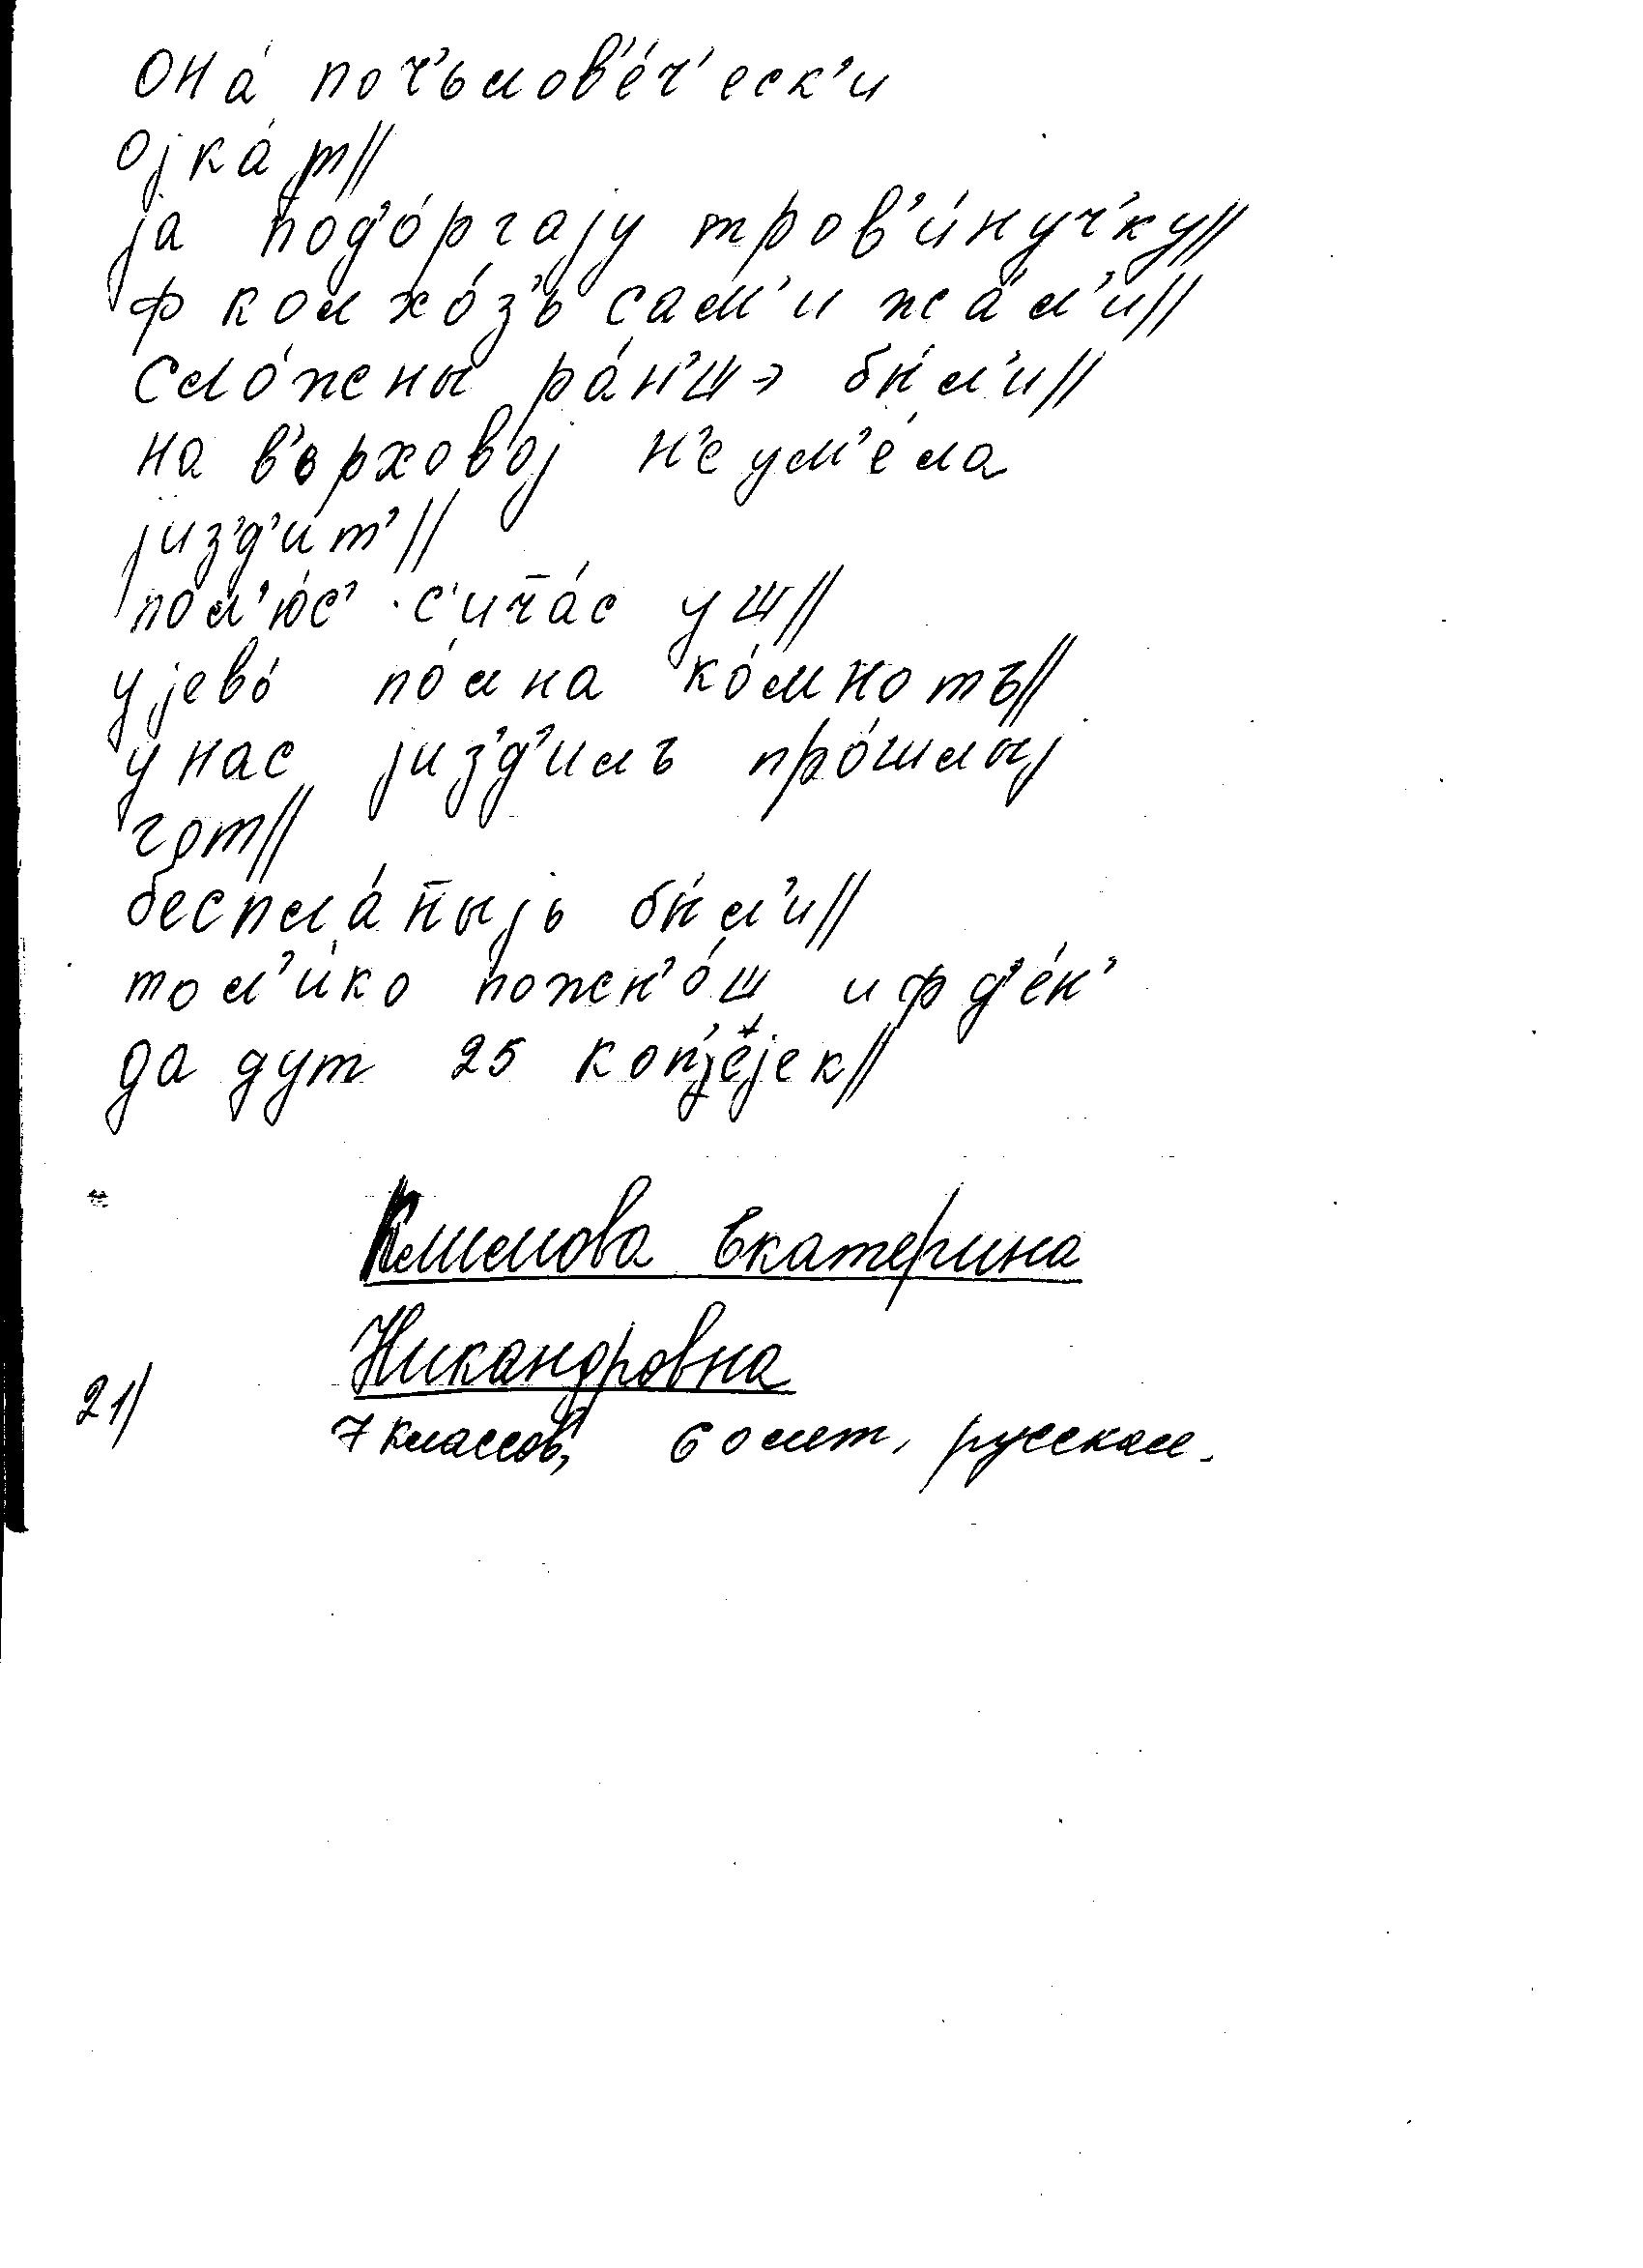 она́ поч'ьлов'е́ч'еск'и
ојка́јт//
ја под'о́ргају тров'и́нуч'ку//
ф колхо́з'ь сам'и жа́л'и//
сло́жены ра́н'шэ бы́л'и//
на в'ьрхово́ј н'е ум'е́ла
јиз'д'и́т'//
пол'ю́с' с'ич̄а́с уш//
у јево́ по́лна ко́мнотъ//
у нас јиз'д'илъ про́шлыј
гот//
беспла́т̄ыјь бы́л'и//
тол'и́ко пожн'о́ш и ф д'е́н'
дадут 25 коп'е́јек//
Климова Екатерина
Никандровна
21/ 7 классов, 60 лет, русская.